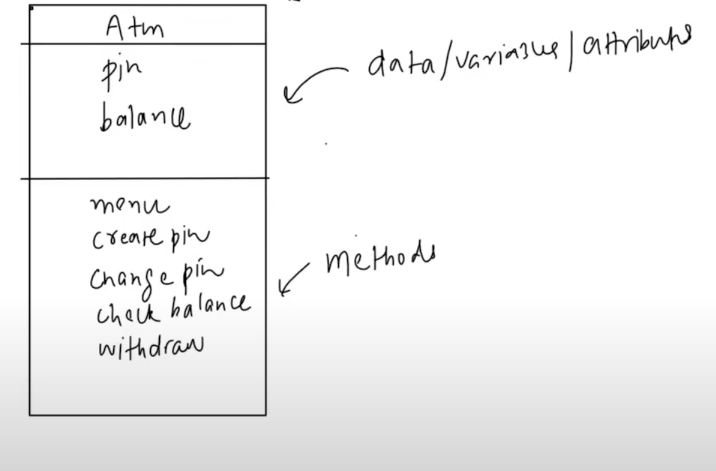 Atm
pin
balance
data/variables/attributes
menu
create pin
change pin
check balance
withdraw
methods